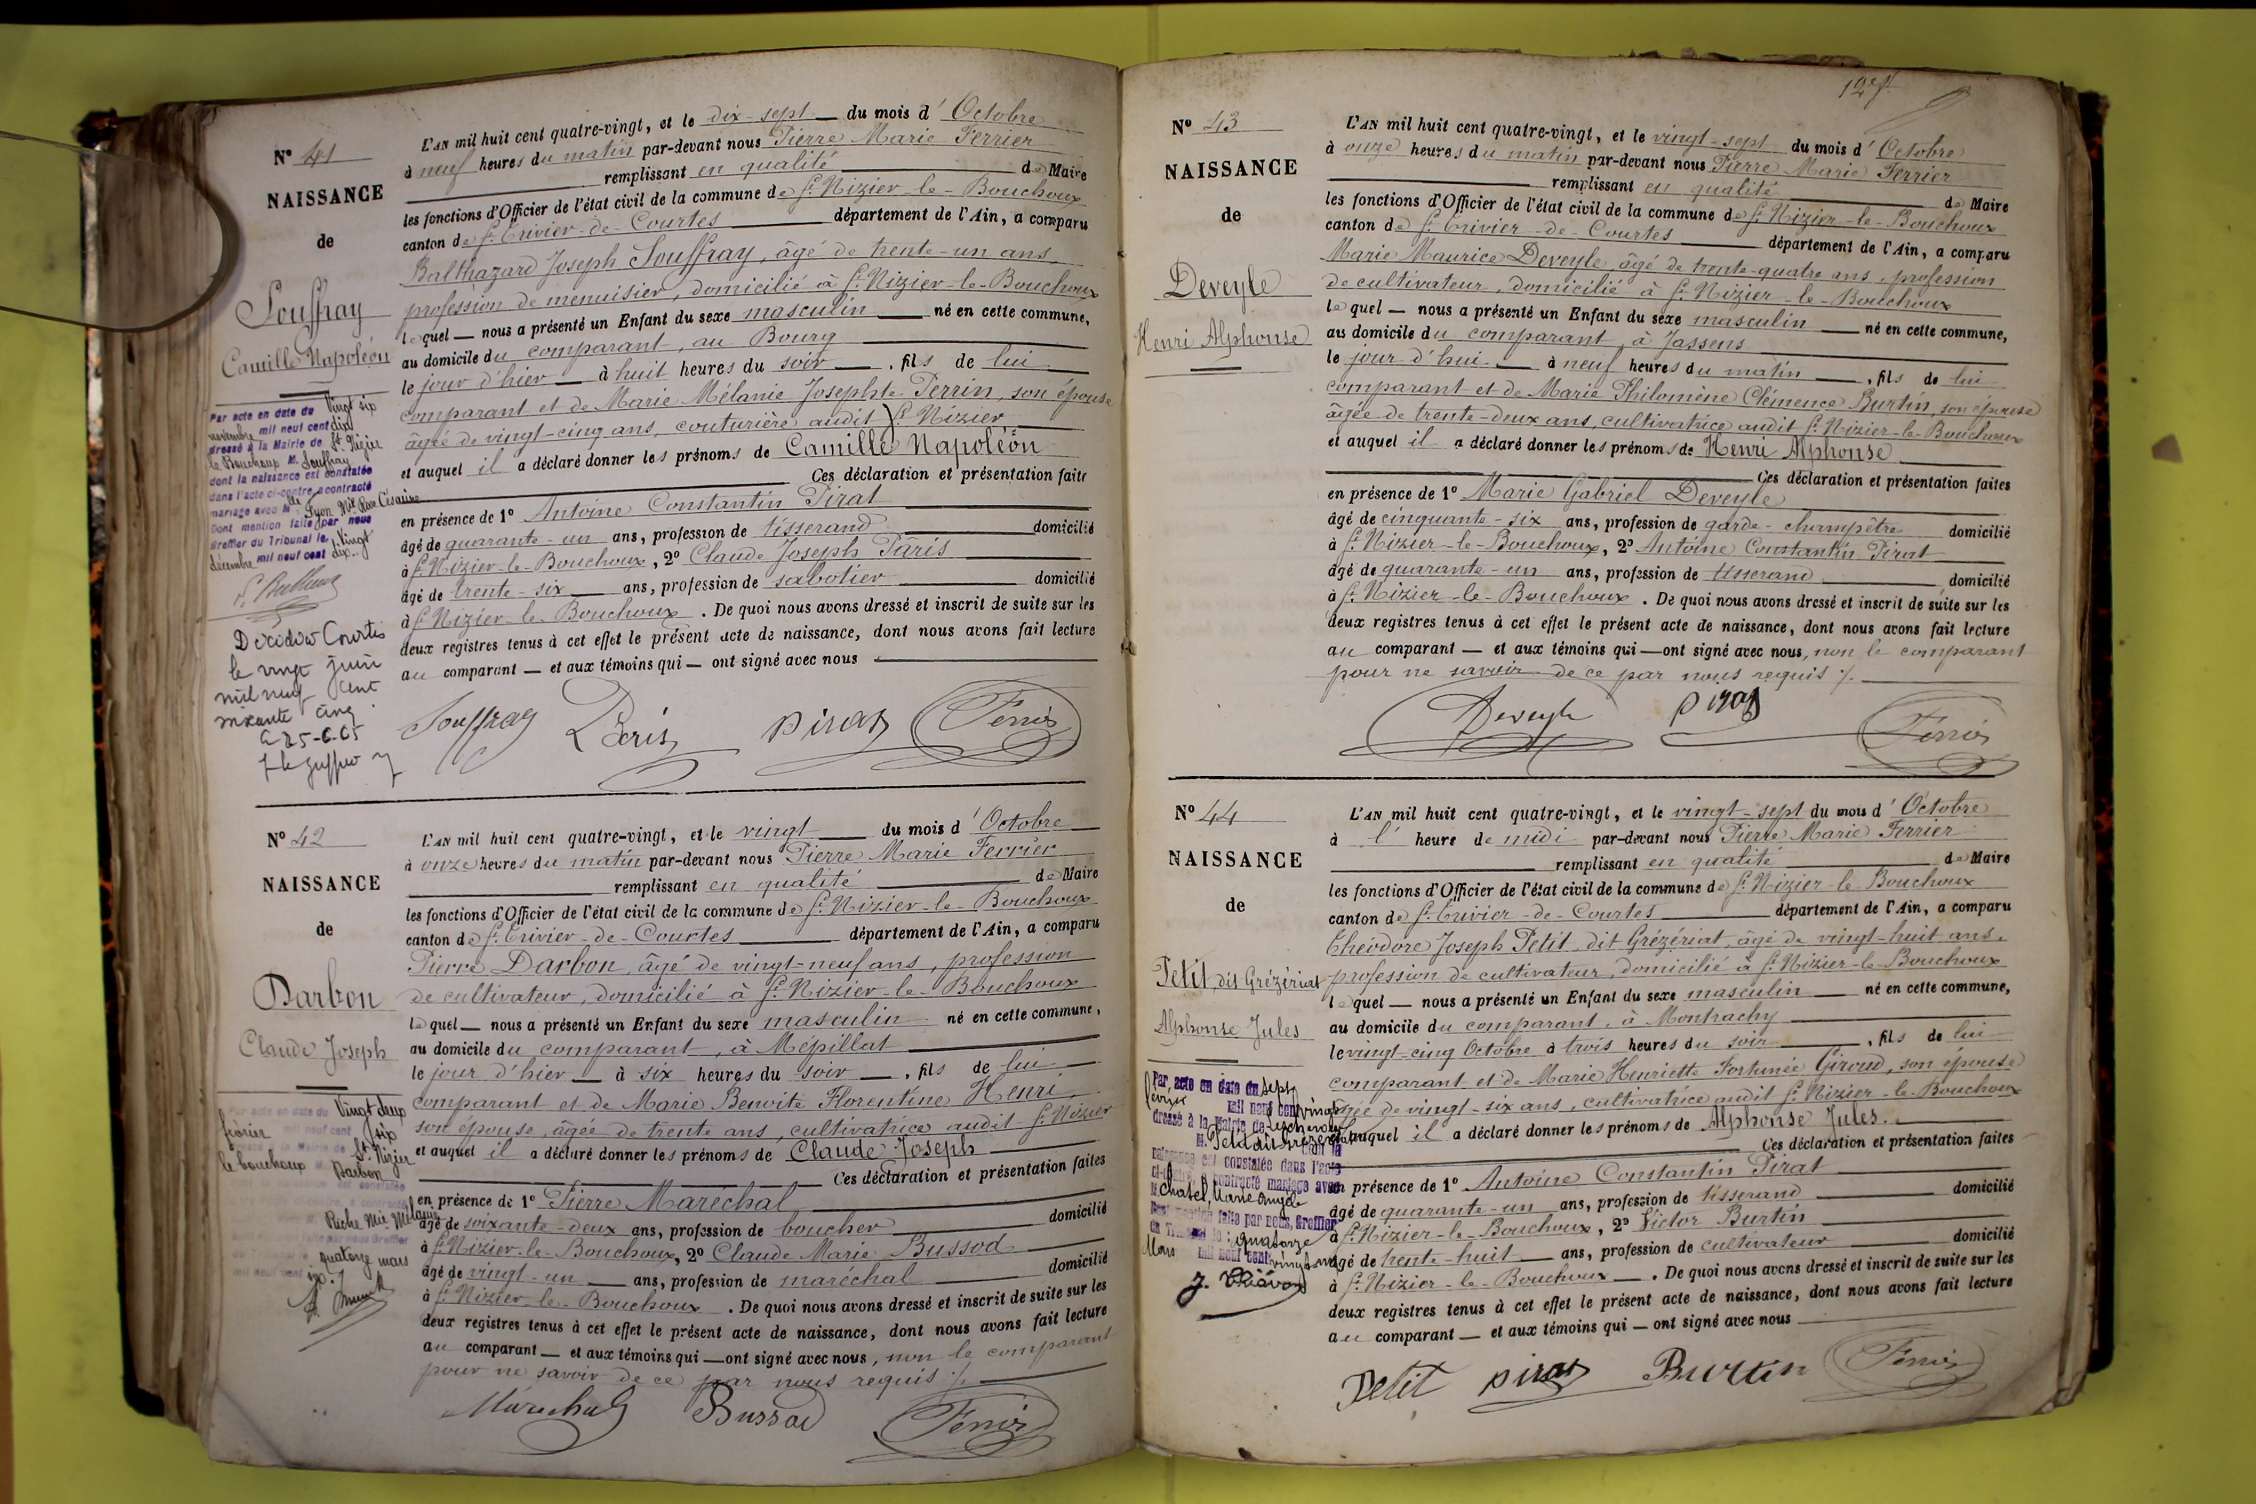 Nº 41
NAISSANCE
de
Souffray
Camille Napoléon
Par acte en date du vingt six
novembre mil neuf cent dix
dressé à la Mairie de St. Nizier
le Bouchoux M. Souffray
dont la naissance est constatée
dans l'acte ci-contre a contracté
mariage avec Melle de Lyon Mie Rose Césarine
Dont mention faite par nous
Greffier du Tribunal le vingt
décembre mil neuf cent dix
Décédé à Courtes
le vingt juin
mil neuf cent
soixante cinq
25-6-65
L'AN mil huit cent quatre-vingt, et le dix-sept du mois d'Octobre
à neuf heures du matin par-devant nous Pierre Marie Ferrier
remplissant en qualité de Maire
les fonctions d'Officier de l'état civil de la commune de St. Nizier-le-Bouchoux
canton de St. Trivier-de-Courtes département de l'Ain, a comparu
Balthazard Joseph Souffray, âgé de trente-un ans,
profession de menuisier, domicilié à St. Nizier-le-Bouchoux
lequel nous a présenté un Enfant du sexe masculin né en cette commune,
au domicile du comparant, au Bourg
le jour d'hier à huit heures du soir, fils de lui
comparant et de Marie Mélanie Josephte Perrin, son épouse
âgée de vingt-cinq ans, couturière audit St. Nizier
et auquel il a déclaré donner les prénoms de Camille Napoléon
Ces déclaration et présentation faite
en présence de 1º Antoine Constantin Pirat
âgé de quarante-un ans, profession de tisserand domicilié
à St. Nizier-le-Bouchoux, 2º Claude Joseph Pâris
âgé de trente-six ans, profession de sabotier domicilié
à St. Nizier-le-Bouchoux. De quoi nous avons dressé et inscrit de suite sur les
deux registres tenus à cet effet le présent acte de naissance, dont nous avons fait lecture
au comparant et aux témoins qui ont signé avec nous
Souffray Pâris Pirat Ferrier
Nº 42
NAISSANCE
de
Darbon
Claude Joseph
Par acte en date du vingt deux
février mil neuf cent six
St. Nizier
le bouchoux M. Darbon
Riche Mie Mélanie
quatorze mars
mil neuf cent six.
L'AN mil huit cent quatre-vingt, et le vingt du mois d'Octobre
à onze heures du matin par-devant nous Pierre Marie Ferrier
remplissant en qualité de Maire
les fonctions d'Officier de l'état civil de la commune de St. Nizier-le-Bouchoux
canton de St. Trivier-de-Courtes département de l'Ain, a comparu
Pierre Darbon, âgé de vingt-neuf ans, profession
de cultivateur, domicilié à St. Nizier-le-Bouchoux
lequel nous a présenté un Enfant du sexe masculin né en cette commune,
au domicile du comparant, à Mépillat
le jour d'hier à six heures du soir, fils de lui
comparant et de Marie Benoite Florentine Henri,
son épouse, âgée de trente ans, cultivatrice audit St. Nizier
et auquel il a déclaré donner les prénoms de Claude Joseph
Ces déclaration et présentation faites
en présence de 1º Pierre Maréchal
âgé de soixante-deux ans, profession de boucher domicilié
à St. Nizier-le-Bouchoux, 2º Claude Marie Bussod
âgé de vingt-un ans, profession de maréchal domicilié
à St. Nizier-le-Bouchoux. De quoi nous avons dressé et inscrit de suite sur les
deux registres tenus à cet effet le présent acte de naissance, dont nous avons fait lecture
au comparant et aux témoins qui ont signé avec nous, non le comparant
pour ne savoir de ce par nous requis ./.
Maréchal Bussod Ferrier
Nº 43
NAISSANCE
de
Deveyle
Henri Alphonse
L'AN mil huit cent quatre-vingt, et le vingt-sept du mois d'Octobre
à onze heures du matin par-devant nous Pierre Marie Ferrier
remplissant en qualité de Maire
les fonctions d'Officier de l'état civil de la commune de St. Nizier-le-Bouchoux
canton de St. Trivier-de-Courtes département de l'Ain, a comparu
Marie Maurice Deveyle, âgé de trente-quatre ans, profession
de cultivateur, domicilié à St. Nizier-le-Bouchoux
lequel nous a présenté un Enfant du sexe masculin né en cette commune,
au domicile du comparant, à Jassens
le jour d'hui à neuf heures du matin, fils de lui
comparant et de Marie Philomène Clémence Burtin, son épouse
âgée de trente-deux ans, cultivatrice audit St. Nizier-le-Bouchoux
et auquel il a déclaré donner les prénoms de Henri Alphonse
Ces déclaration et présentation faites
en présence de 1º Marie Gabriel Deveyle
âgé de cinquante-six ans, profession de garde-champêtre domicilié
à St. Nizier-le-Bouchoux, 2º Antoine Constantin Pirat
âgé de quarante-un ans, profession de tisserand domicilié
à St. Nizier-le-Bouchoux. De quoi nous avons dressé et inscrit de suite sur les
deux registres tenus à cet effet le présent acte de naissance, dont nous avons fait lecture
au comparant et aux témoins qui ont signé avec nous, non le comparant
pour ne savoir de ce par nous requis ./.
Deveyle Pirat Ferrier
Nº 44
NAISSANCE
de
Petit dit Grézériat
Alphonse Jules
Par acte en date du sept
février mil neuf cent vingt
dressé à la Mairie de Lescheroux
M. Petit dit Grézériat
dont la
naissance est constatée dans l'acte
ci-contre a contracté mariage avec
Chatel, Marie
Dont mention faite par nous, Greffier
du Tribunal le: quatorze
Mars mil neuf cent vingt
L'AN mil huit cent quatre-vingt, et le vingt-sept du mois d'Octobre
à l'heure de midi par-devant nous Pierre Marie Ferrier
remplissant en qualité de Maire
les fonctions d'Officier de l'état civil de la commune de St. Nizier-le-Bouchoux
canton de St. Trivier-de-Courtes département de l'Ain, a comparu
Théodore Joseph Petit, dit Grézériat, âgé de vingt-huit ans,
profession de cultivateur, domicilié à St. Nizier-le-Bouchoux
lequel nous a présenté un Enfant du sexe masculin né en cette commune,
au domicile du comparant, à Montrachy
le vingt-cinq Octobre à trois heures du soir, fils de lui
comparant et de Marie Henriette Fortunée Giroud, son épouse
âgée de vingt-six ans, cultivatrice audit St. Nizier-le-Bouchoux
et auquel il a déclaré donner les prénoms de Alphonse Jules.
Ces déclaration et présentation faites
en présence de 1º Antoine Constantin Pirat
âgé de quarante-un ans, profession de tisserand domicilié
à St. Nizier-le-Bouchoux, 2º Victor Burtin
âgé de trente-huit ans, profession de cultivateur domicilié
à St. Nizier-le-Bouchoux. De quoi nous avons dressé et inscrit de suite sur les
deux registres tenus à cet effet le présent acte de naissance, dont nous avons fait lecture
au comparant et aux témoins qui ont signé avec nous
Petit Pirat Burtin Ferrier